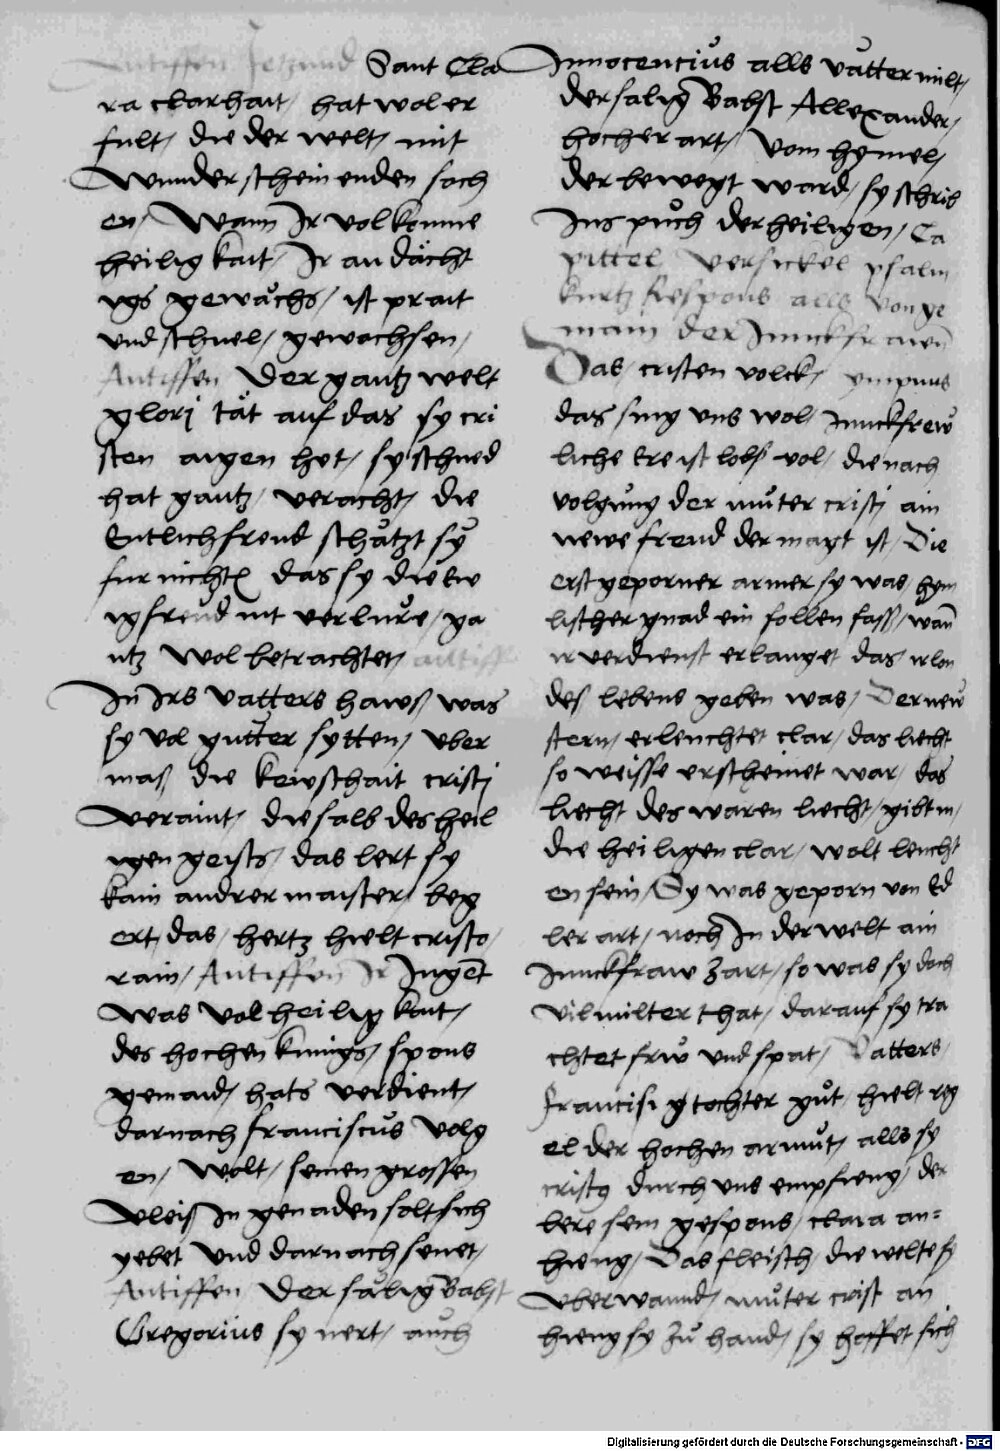 Antiffen Jetzund Sant Cla
ra clarhait / hat wol er
fult / die der welt / mit
wunder scheinenden soch
en / Wann Ir volkomne
heiligkait / Ir andächt
igs gewächs / ist prait
und schnel / gewachsen /
Antiffen Der gantz welt
glorj tät auf das sy cri
sten aigen het / sy schned
hat gantz / veracht / die
Entlich freud schätzt sy
fur nichtz das sy die Ew
ig freud nit verlure / ga
ntz wol betrachtet / antiff
In Irs vatters haws was
sy vol gutter sytten / uber
mass die kewschait cristj
veraint / die salb des heil
igen geists / das lert sy
kain andrer maister / beg
ert / das / hertz hielt cristo /
rain / Antiffen Ir Jugent
was vol heiligkait /
des hochen kunigs / spons
gemaid / hats verdient /
darnach franciscus volg
en / wolt / seinen grossen
vleiss In genaden solt sich
yebet und darnach senet /
Antiffen Der sälig Babst
Gregorius sy nert / auch
Innocencius alls vatter milt /
der salig Babst Allexander /
hocher art / vom hymel /
der bewegt ward / sy schrib
Ins puch der heiligen / Ca
pittel versickel psalm
kurtz Respons alls von ge
main der Junckfrawen
Das / cristen volck / ympnus
das sing uns wol Junckfrew
liche Ere ist lobs vol / die nach
volgung der muter cristi ain
newe freud der magt ist / Die
erst geporner armer sy was / hym
lischer gnad ein follen fass / wan
ir verdienst erlanget das ir lon
des lebens geben was / Der new
stern / erleuchtet clar / das liecht
so weisse erscheinet war / das
liecht des waren liecht / gibt in /
die heiligen clar / wolt leucht
en sein / Sy was geporn von Ed
ler art / noch In der welt ain
Junckfraw zart / so was sy doch
vil milter that / darauf sy tra
chtet frw und spat / Vatters /
francisi g tochter gut / hielt reg
el der hochen armut / alls sy
cristg durch uns empfieng / der
bere sein gespons / clara an=
hieng / Das fleisch / die welt sy
uberwannd / muter crist an
hieng sy zu hand / sy hoffet sich
Digitalisierung gefördert durch die Deutsche Forschungsgemeinschaft - DFG